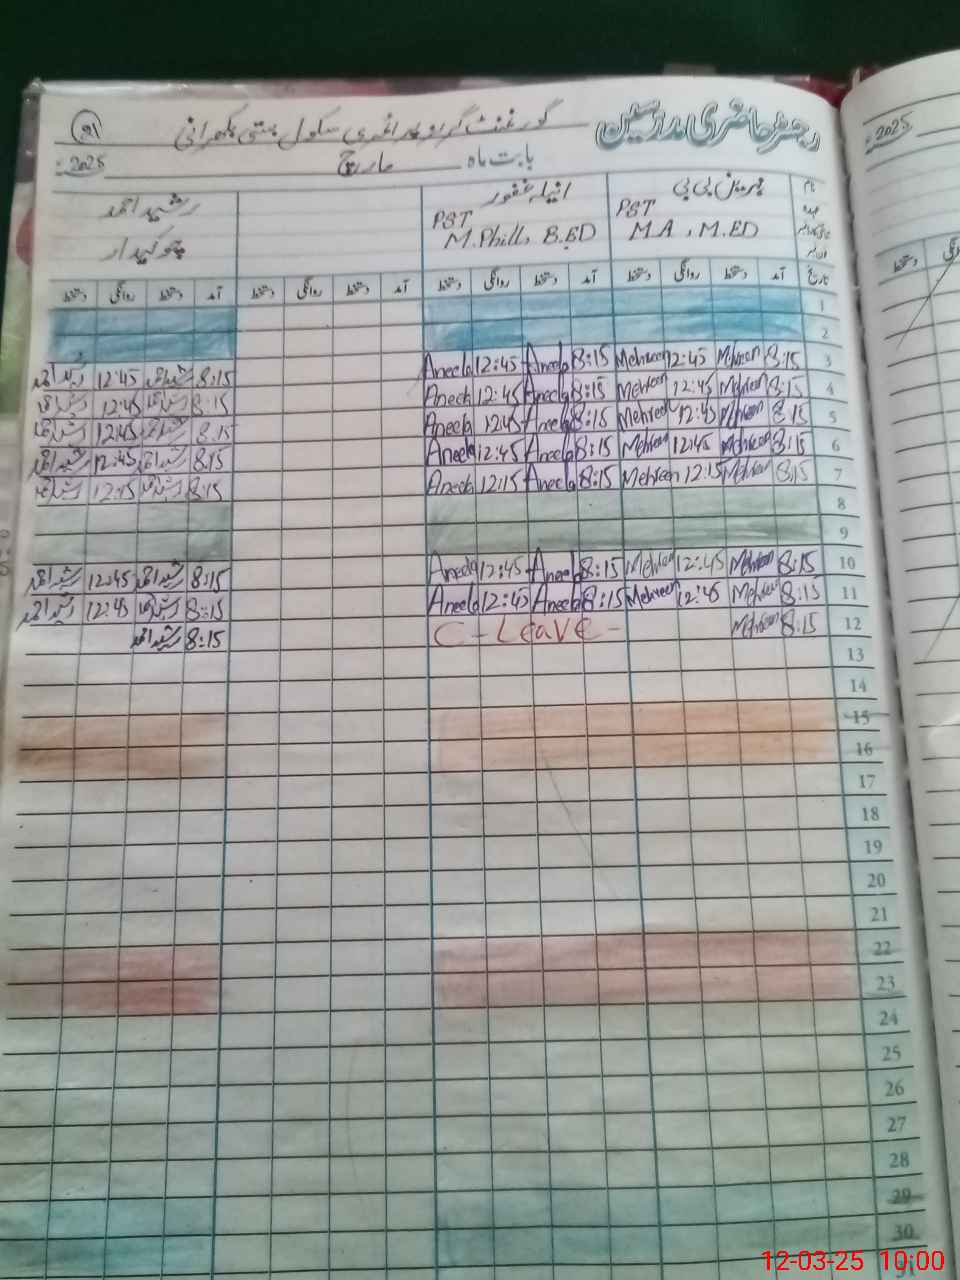 رجسٹر حاضری مدرسین گورنمنٹ گرلز پرائمری سکول بستی
بابت ماہ مارچ 2025ء
نام
عہدہ
بی بی
PST
M.A , M.ED
انیلہ غفور
PST
M.Phill, B.ED
رشید احمد
چوکیدار
تاریخ آمد دستخط روانگی دستخط آمد دستخط روانگی دستخط آمد دستخط روانگی دستخط آمد دستخط روانگی دستخط
1
2
3 8:15 Mehreen 12:45 Mehreen 8:15 Aneela 12:45 Aneela 8:15 رشید احمد 12:45 رشید احمد
4 8:15 Mehreen 12:45 Mehreen 8:15 Aneela 12:45 Aneela 8:15 رشید احمد 12:45 رشید احمد
5 8:15 Mehreen 12:45 Mehreen 8:15 Aneela 12:45 Aneela 8:15 رشید احمد 12:45 رشید احمد
6 8:15 Mehreen 12:45 Mehreen 8:15 Aneela 12:45 Aneela 8:15 رشید احمد 12:45 رشید احمد
7 8:15 Mehreen 12:15 Mehreen 8:15 Aneela 12:15 Aneela 8:15 رشید احمد 12:15 رشید احمد
8
9
10 8:15 Mehreen 12:45 Mehreen 8:15 Aneela 12:45 Aneela 8:15 رشید احمد 12:45 رشید احمد
11 8:15 Mehreen 12:45 Mehreen 8:15 Aneela 12:45 Aneela 8:15 رشید احمد 12:45 رشید احمد
12 8:15 Mehreen C - Leave - 8:15 رشید احمد
13
14
15
16
17
18
19
20
21
22
23
24
25
26
27
28
29
30
31
2025
دستخط
12-03-25 10:00